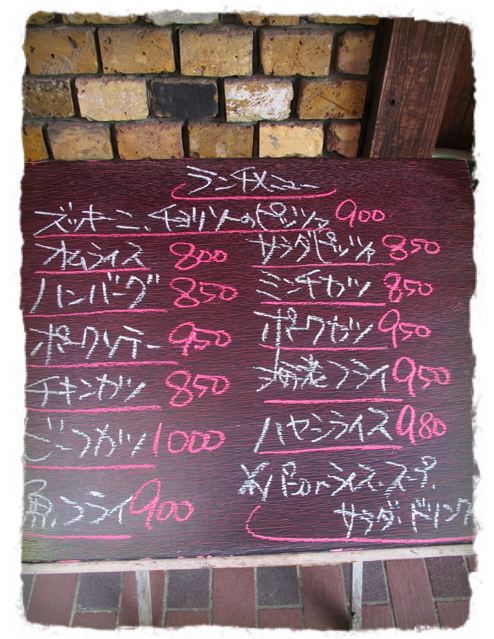 ランチメニュー
ズッキーニ、チョリソーのピッツァ 900
オムライス 800 サラダピッツァ 850
ハンバーグ 850 ミンチカツ 850
ポークソテー 950 ポークカツ 950
チキンカツ 850 海老フライ 950
ビーフカツ 1000 ハヤシライス 980
魚フライ 900 パンorライス、スープ、
サラダ、ドリンク